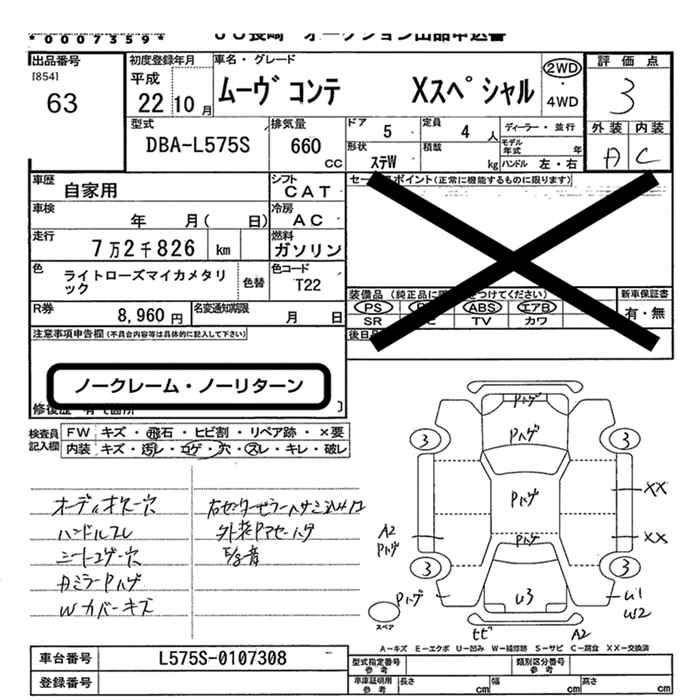 *0007359*
ＪＵ長崎 オークション出品申込書
出品番号
[854]
63
初度登録年月
平成
22 10 月
車名・グレード
ムーヴ コンテ Xスペシャル
2WD
・
4WD
評価点
3
外装 内装
A C
型式
DBA-L575S
排気量
660
CC
ドア 5
定員 4 人
ディーラー・並行
形状
ステW
積載 kg
モデル年式 年
ハンドル 左・右
車歴 自家用
シフト CAT
車検 年 月( 日)
冷房 AC
走行 7万2千826 km
燃料 ガソリン
色 ライトローズマイカメタリック
色替
色コード T22
R券 8,960 円
名変通知期限 月 日
セー ポイント(正常に機能するものに限ります)
装備品 (純正品に つけてください)
新車保証書
有・無
PS ABS エアB
SR TV カワ
後日
注意事項申告欄(不具合内容等は具体的に記入して下さい)
ノークレーム・ノーリターン
修復歴
検査員記入欄
FW キズ・飛石・ヒビ割・リペア跡・×要
内装 キズ・汚レ・コゲ・穴・スレ・キレ・破レ
オーディオケース穴
ハンドルスレ
シートコゲ穴
AミラーPハゲ
Wカバーキズ
異音
Pハゲ
Pハゲ
3 3
Pハゲ
XX
A2
Pハゲ
Pハゲ
XX
3 3
Pハゲ
U3
U1
スペア
A2
A-キズ E-エクボ U-凹み W-補修跡 S-サビ C-腐食 XX-交換済
車台番号 L575S-0107308
登録番号
型式指定番号
参考
類別区分番号
参考
車庫証明用
参考
長さ cm 幅 cm 高さ cm